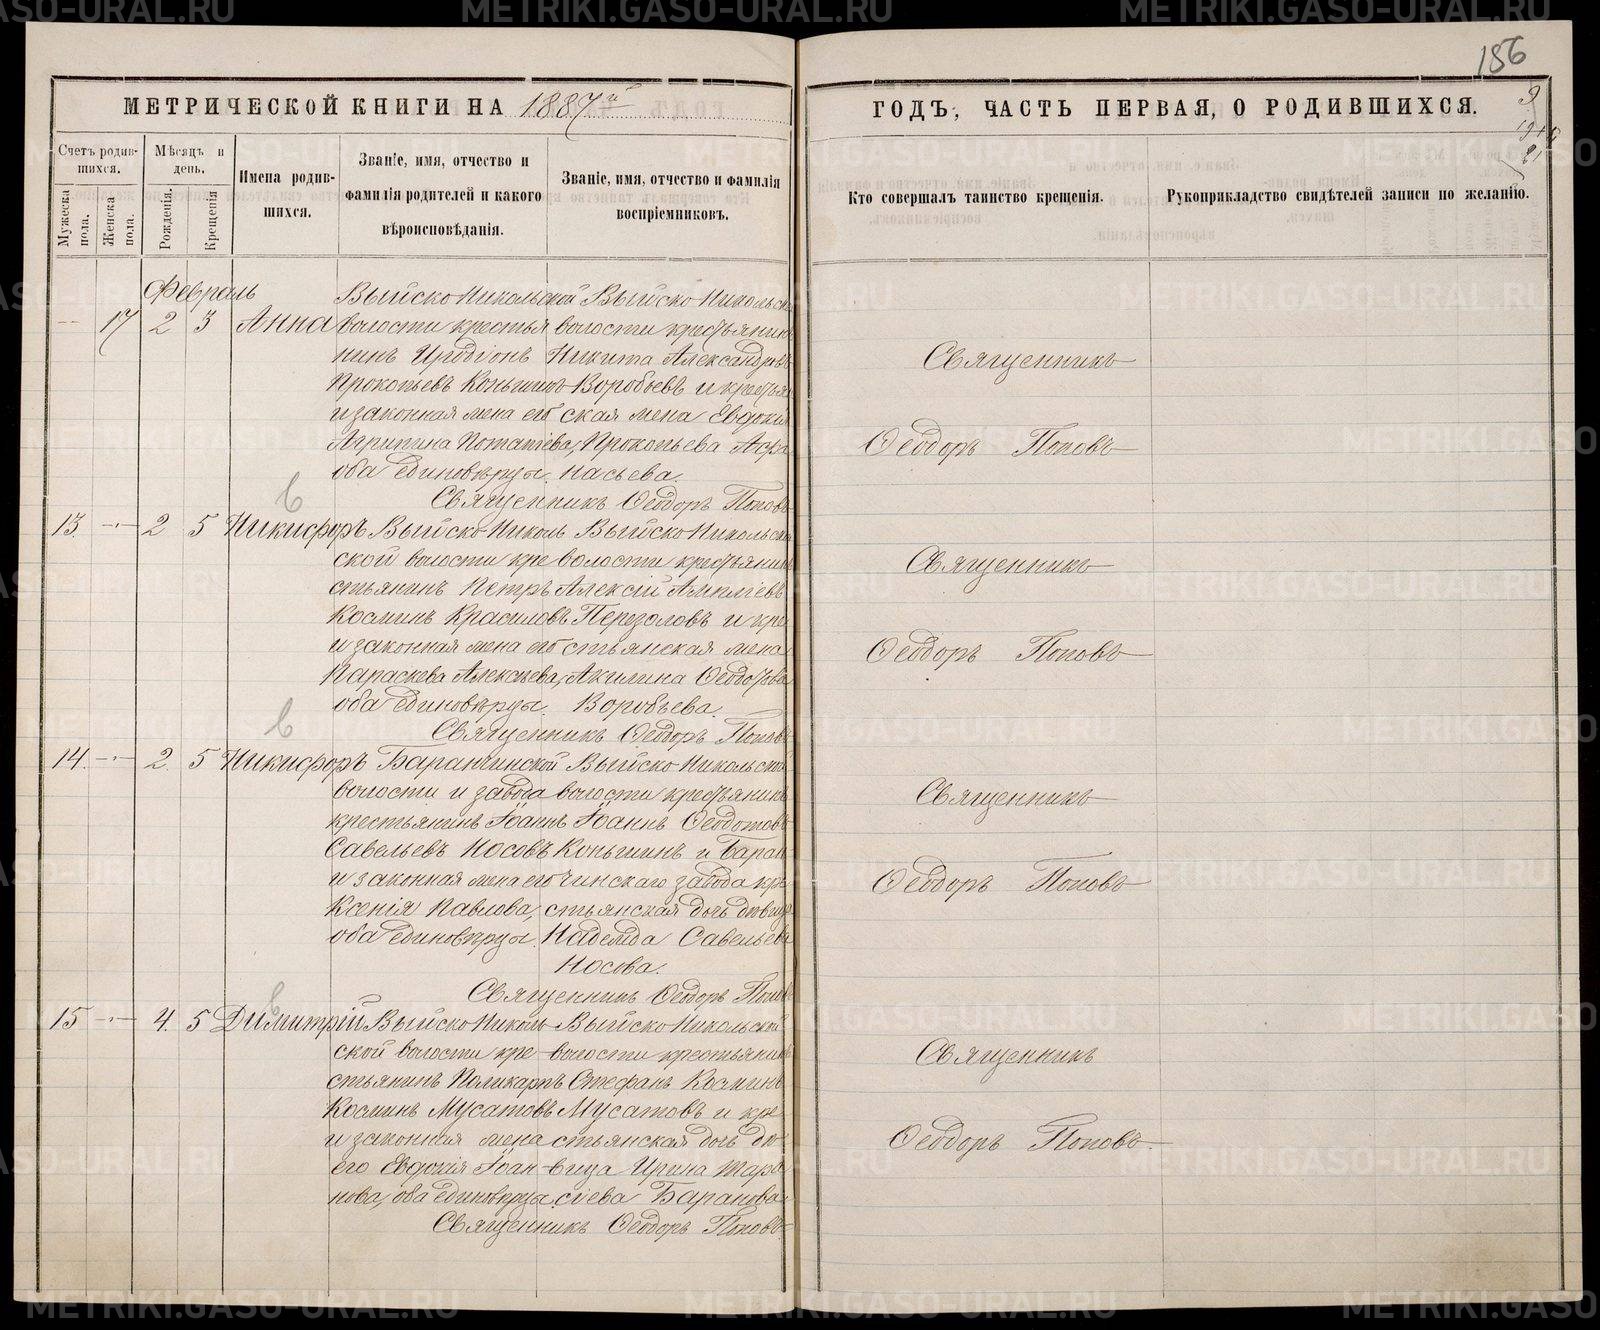 186
МЕТРИЧЕСКОЙ КНИГИ НА 1887й
ГОДЪ, ЧАСТЬ ПЕРВАЯ, О РОДИВШИХСЯ.
Счетъ родившихся.
Мужеска пола.
Женска пола.
Мѣсяцъ и день.
Рожденія.
Крещенія
Имена родившихся.
Званіе, имя, отчество и фамилія родителей и какого вѣроисповѣданія.
Званіе, имя, отчество и фамилія воспріемниковъ.
Кто совершалъ таинство крещенія.
Рукоприкладство свидѣтелей записи по желанію.
Февраль
17 2 3 Анна
Выйско Никольской
волости крестья
нинъ Иродіонъ
Прокопьевъ Коньшинъ
и законная жена его
Агрипина Потапіева,
оба единовѣрцы.
Выйско-Никольской
волости крестьянинъ
Никита Александровъ
Воробьевъ и крестьян
ская жена Евдокія
Прокопьева Афа
насьева.
Священникъ
Ѳеодоръ Поповъ
Священникъ Ѳеодоръ Поповъ
13. 2 5 Никифоръ
Выйско-Николь
ской волости кре
стьянинъ Петръ
Косминъ Красиловъ
и законная жена его
Параскева Алексѣева,
оба единовѣрцы.
Выйско Никольской
волости крестьянинъ
Алексій
Перезоловъ и кре
стьянская жена
Акилина Ѳеодотова
Воробьева.
Священникъ
Ѳеодоръ Поповъ
Священникъ Ѳеодоръ Поповъ
14. 2. 5 Никифоръ
Баранчинской
волости и завода
крестьянинъ Іоаннъ
Савельевъ Носовъ
и законная жена его
Ксенія Павлова,
оба единовѣрцы.
Выйско Никольской
волости крестьянинъ
Іоаннъ Ѳеодотовъ
Коньшинъ и Баран
чинскаго завода кре
стьянская дочь дѣвица
Надежда Савельева
Носова.
Священникъ
Ѳеодоръ Поповъ
Священникъ Ѳеодоръ Поповъ
15 4. 5 Димитрій
Выйско Николь
ской волости кре
стьянинъ Поликарпъ
Косминъ Мусатовъ
и законная жена
его Евдокія Іоан
нова, оба единовѣрцы.
Выйско Никольской
волости крестьянинъ
Стефанъ Козминъ
Мусатовъ и кре
стьянская дочь дѣ
вица Ирина Тара
сіева Баранова.
Священникъ
Ѳеодоръ Поповъ.
Священникъ Ѳеодоръ Поповъ
METRIKI.GASO-URAL.RU